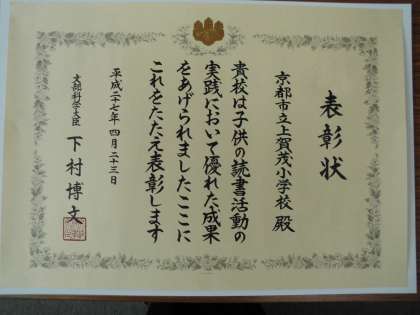 表彰状
京都市立上賀茂小学校 殿
貴校は子供の読書活動の
実践において優れた成果
をあげられましたここに
これをたたえ表彰します
平成二十七年四月二十三日
文部科学大臣 下村博文